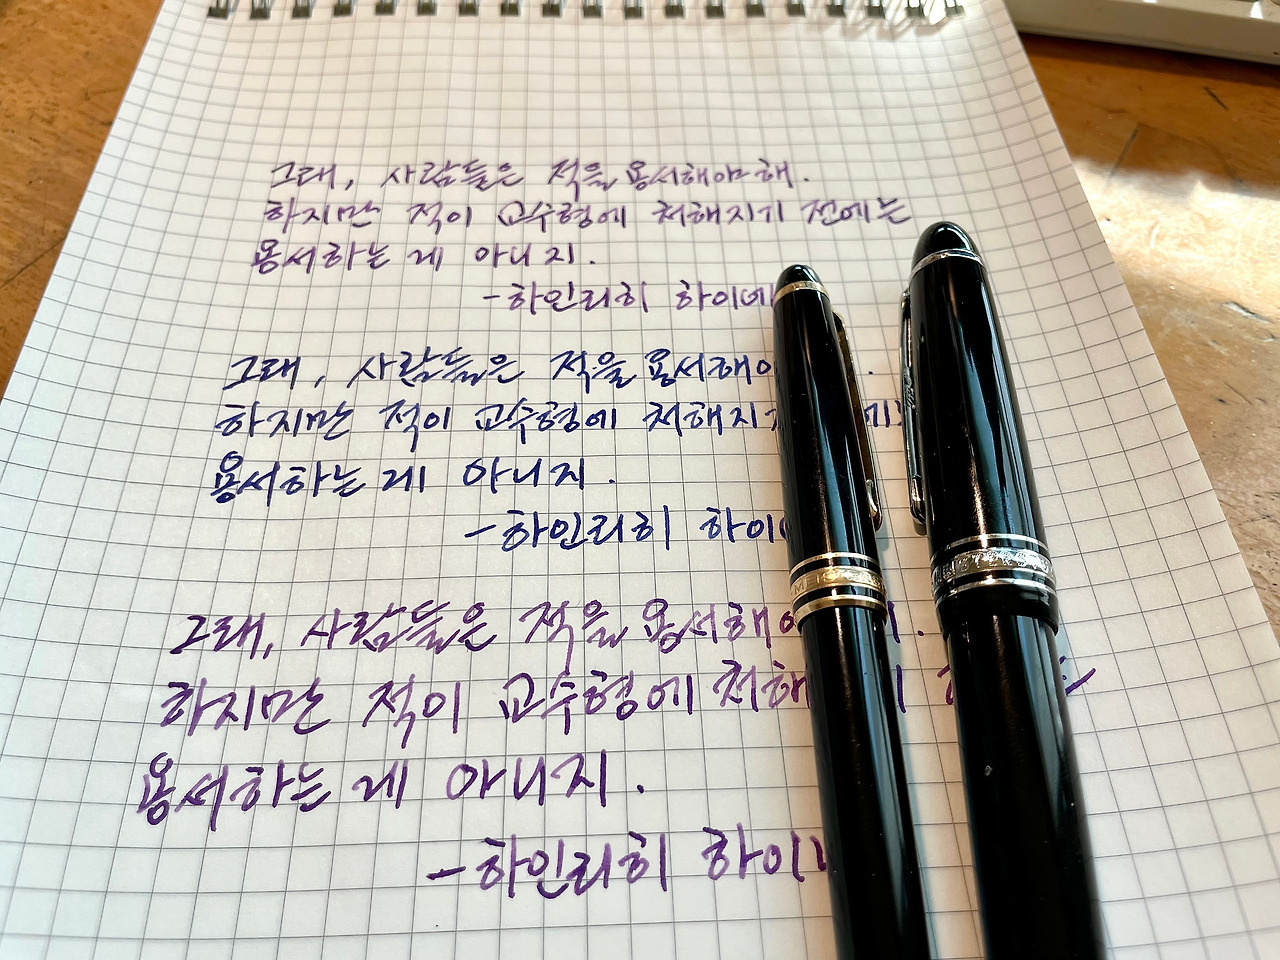 그래, 사람들은 적을 용서해야 해.
하지만 적이 교수형에 처해지기 전에는
용서하는 게 아니지.
-하인리히 하이네
그래, 사람들은 적을 용서해야
하지만 적이 교수형에 처해지
용서하는 게 아니지.
-하인리히 하이
그래, 사람들은 적을 용서해
하지만 적이 교수형에 처해
용서하는 게 아니지.
-하인리히 하이